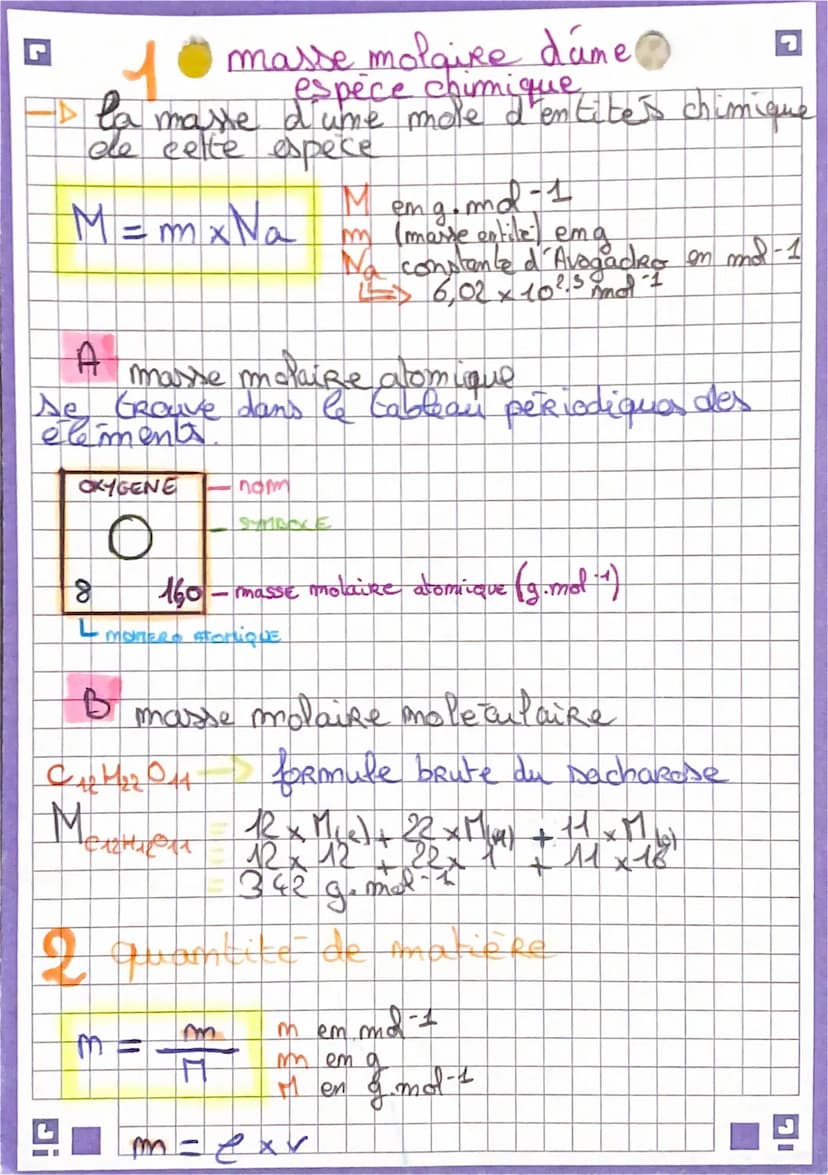 1 masse molaire d'une
espèce chimique
→ la masse d'une mole d'entités chimique
de cette espèce
M = m x Na
M en g.mol-1
m (masse entité) en g
Na constante d'Avogadro en mol-1
↳ 6,02 x 10^23 mol^-1
A masse molaire atomique
Se trouve dans le tableau périodiques des
éléments.
OXYGENE - nom
O - SYMBOLE
8 16,0 - masse molaire atomique (g.mol^-1)
NUMERO ATOMIQUE
B masse molaire moléculaire
C12H22O11 → formule brute du saccharose
= 12 x M(c) + 22 x M(H) + 11 x M(o)
= 12 x 12 + 22 x 1 + 11 x 16
= 342 g.mol^-1
2 quantité de matière
n = m/M
n en mol^-1
m en g
M en g.mol^-1
m = ρ x v